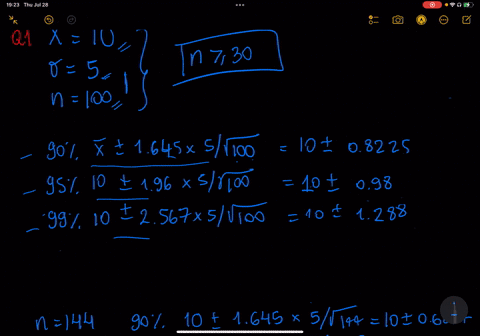 19:23 Thu Jul 28
Q1 x = 10
σ = 5
n = 100
n ≥ 30
- 90% x̄ ± 1.645 × 5/√100 = 10 ± 0.8225
- 95% 10 ± 1.96 × 5/√100 = 10 ± 0.98
- 99% 10 ± 2.567 × 5/√100 = 10 ± 1.288
n = 144 90% 10 ± 1.645 × 5/√144 = 10 ±